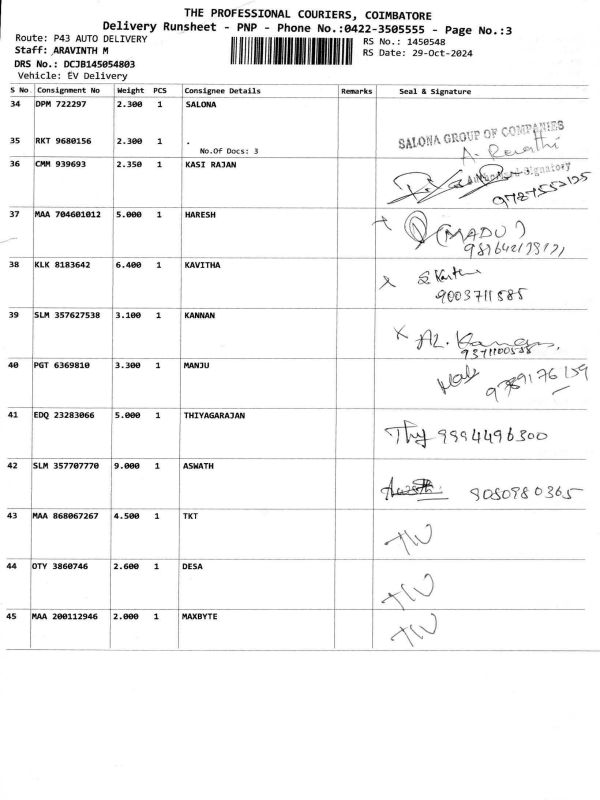 THE PROFESSIONAL COURIERS, COIMBATORE
Delivery Runsheet - PNP - Phone No.:0422-3505555 - Page No.:3
Route: P43 AUTO DELIVERY
RS No.: 1450548
Staff: ARAVINTH M
RS Date: 29-Oct-2024
DRS No.: DCJB145054803
Vehicle: EV Delivery
S No Consignment No Weight PCS Consignee Details Remarks Seal & Signature
34 DPM 722297 2.300 1 SALONA
SALONA GROUP OF COMPANIES
35 RKT 9680156 2.300 1 .
A. Revathi
No.Of Docs: 3
36 CMM 939693 2.350 1 KASI RAJAN
Signatory
37 MAA 704601012 5.000 1 HARESH
(MADU)
38 KLK 8183642 6.400 1 KAVITHA
9003711585
39 SLM 357627538 3.100 1 KANNAN
9371100558
40 PGT 6369810 3.300 1 MANJU
41 EDQ 23283066 5.000 1 THIYAGARAJAN
Thy 9994496300
42 SLM 357707770 9.000 1 ASWATH
9080980365
43 MAA 868067267 4.500 1 TKT
44 OTY 3860746 2.600 1 DESA
45 MAA 200112946 2.000 1 MAXBYTE